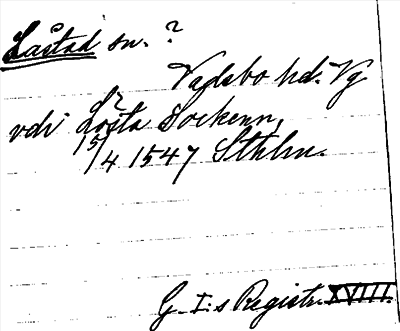 Låstad sn. ?
Vadsbo hd. Vg
vdi Losta Sockenn,
15/4 1547 Sthlm.
G. I:s Registr. XVIII.